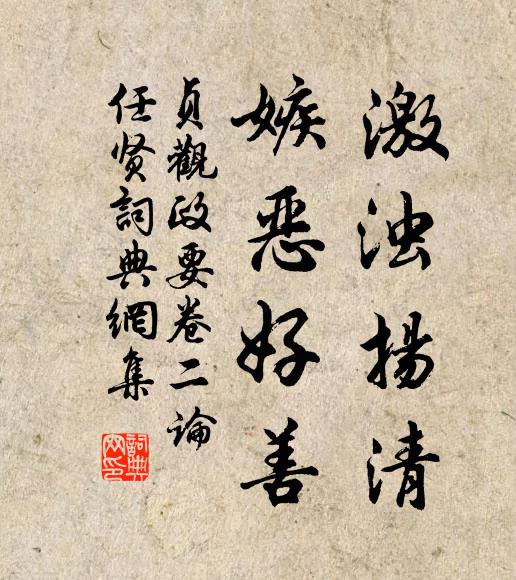 激浊揚清
嫉惡好善
貞觀政要卷二論
任贤詞典網集
詞典网印